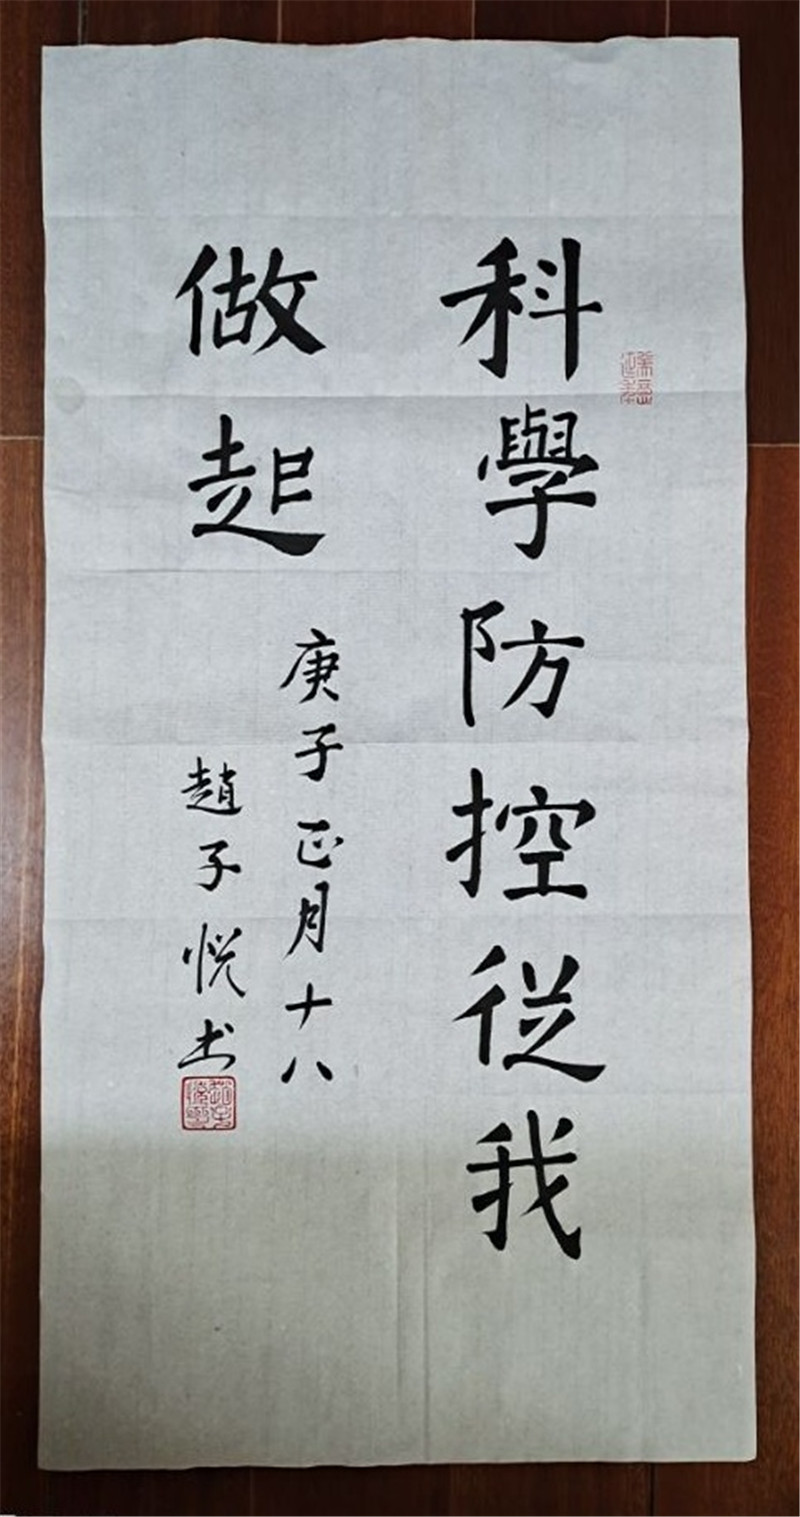 科學防控從我
做起
庚子正月十八
趙子悦书